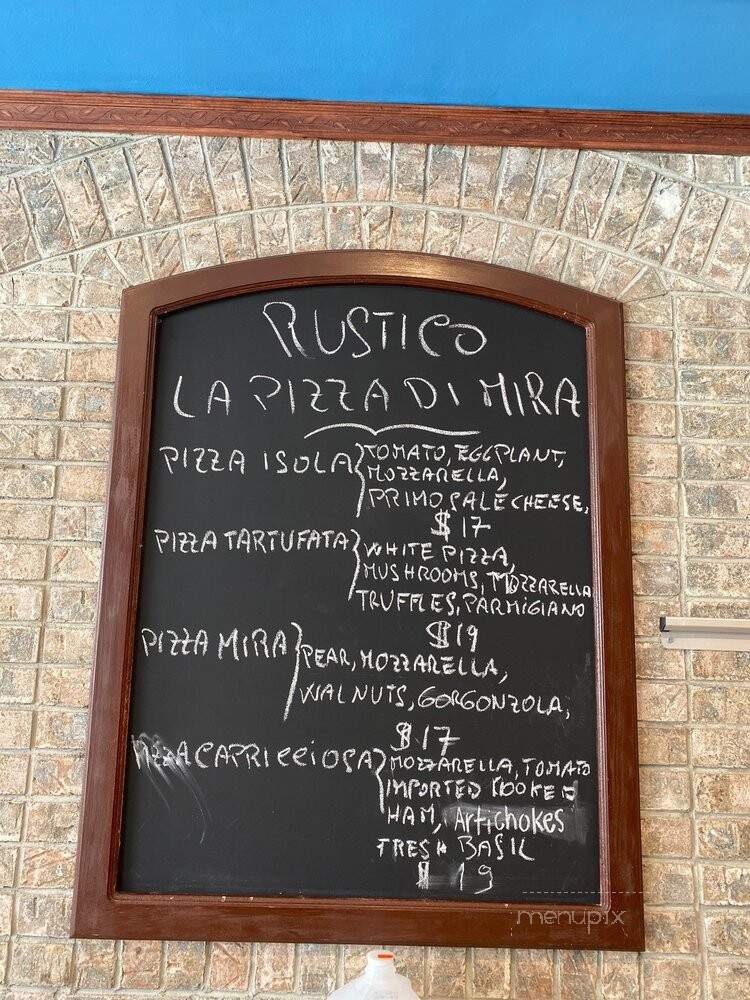 RUSTICO
LA PIZZA DI MIRA
PIZZA ISOLA TOMATO, EGGPLANT,
MOZZARELLA,
PRIMO SALE CHEESE.
$17
PIZZA TARTUFATA WHITE PIZZA,
MUSHROOMS, MOZZARELLA
TRUFFLES, PARMIGIANO
$19
PIZZA MIRA PEAR, MOZZARELLA,
WALNUTS, GORGONZOLA,
$17
PIZZA CAPRICCIOSA MOZZARELLA, TOMATO
IMPORTED KOOKED
HAM, Artichokes
FRESH BASIL
$19
menupix